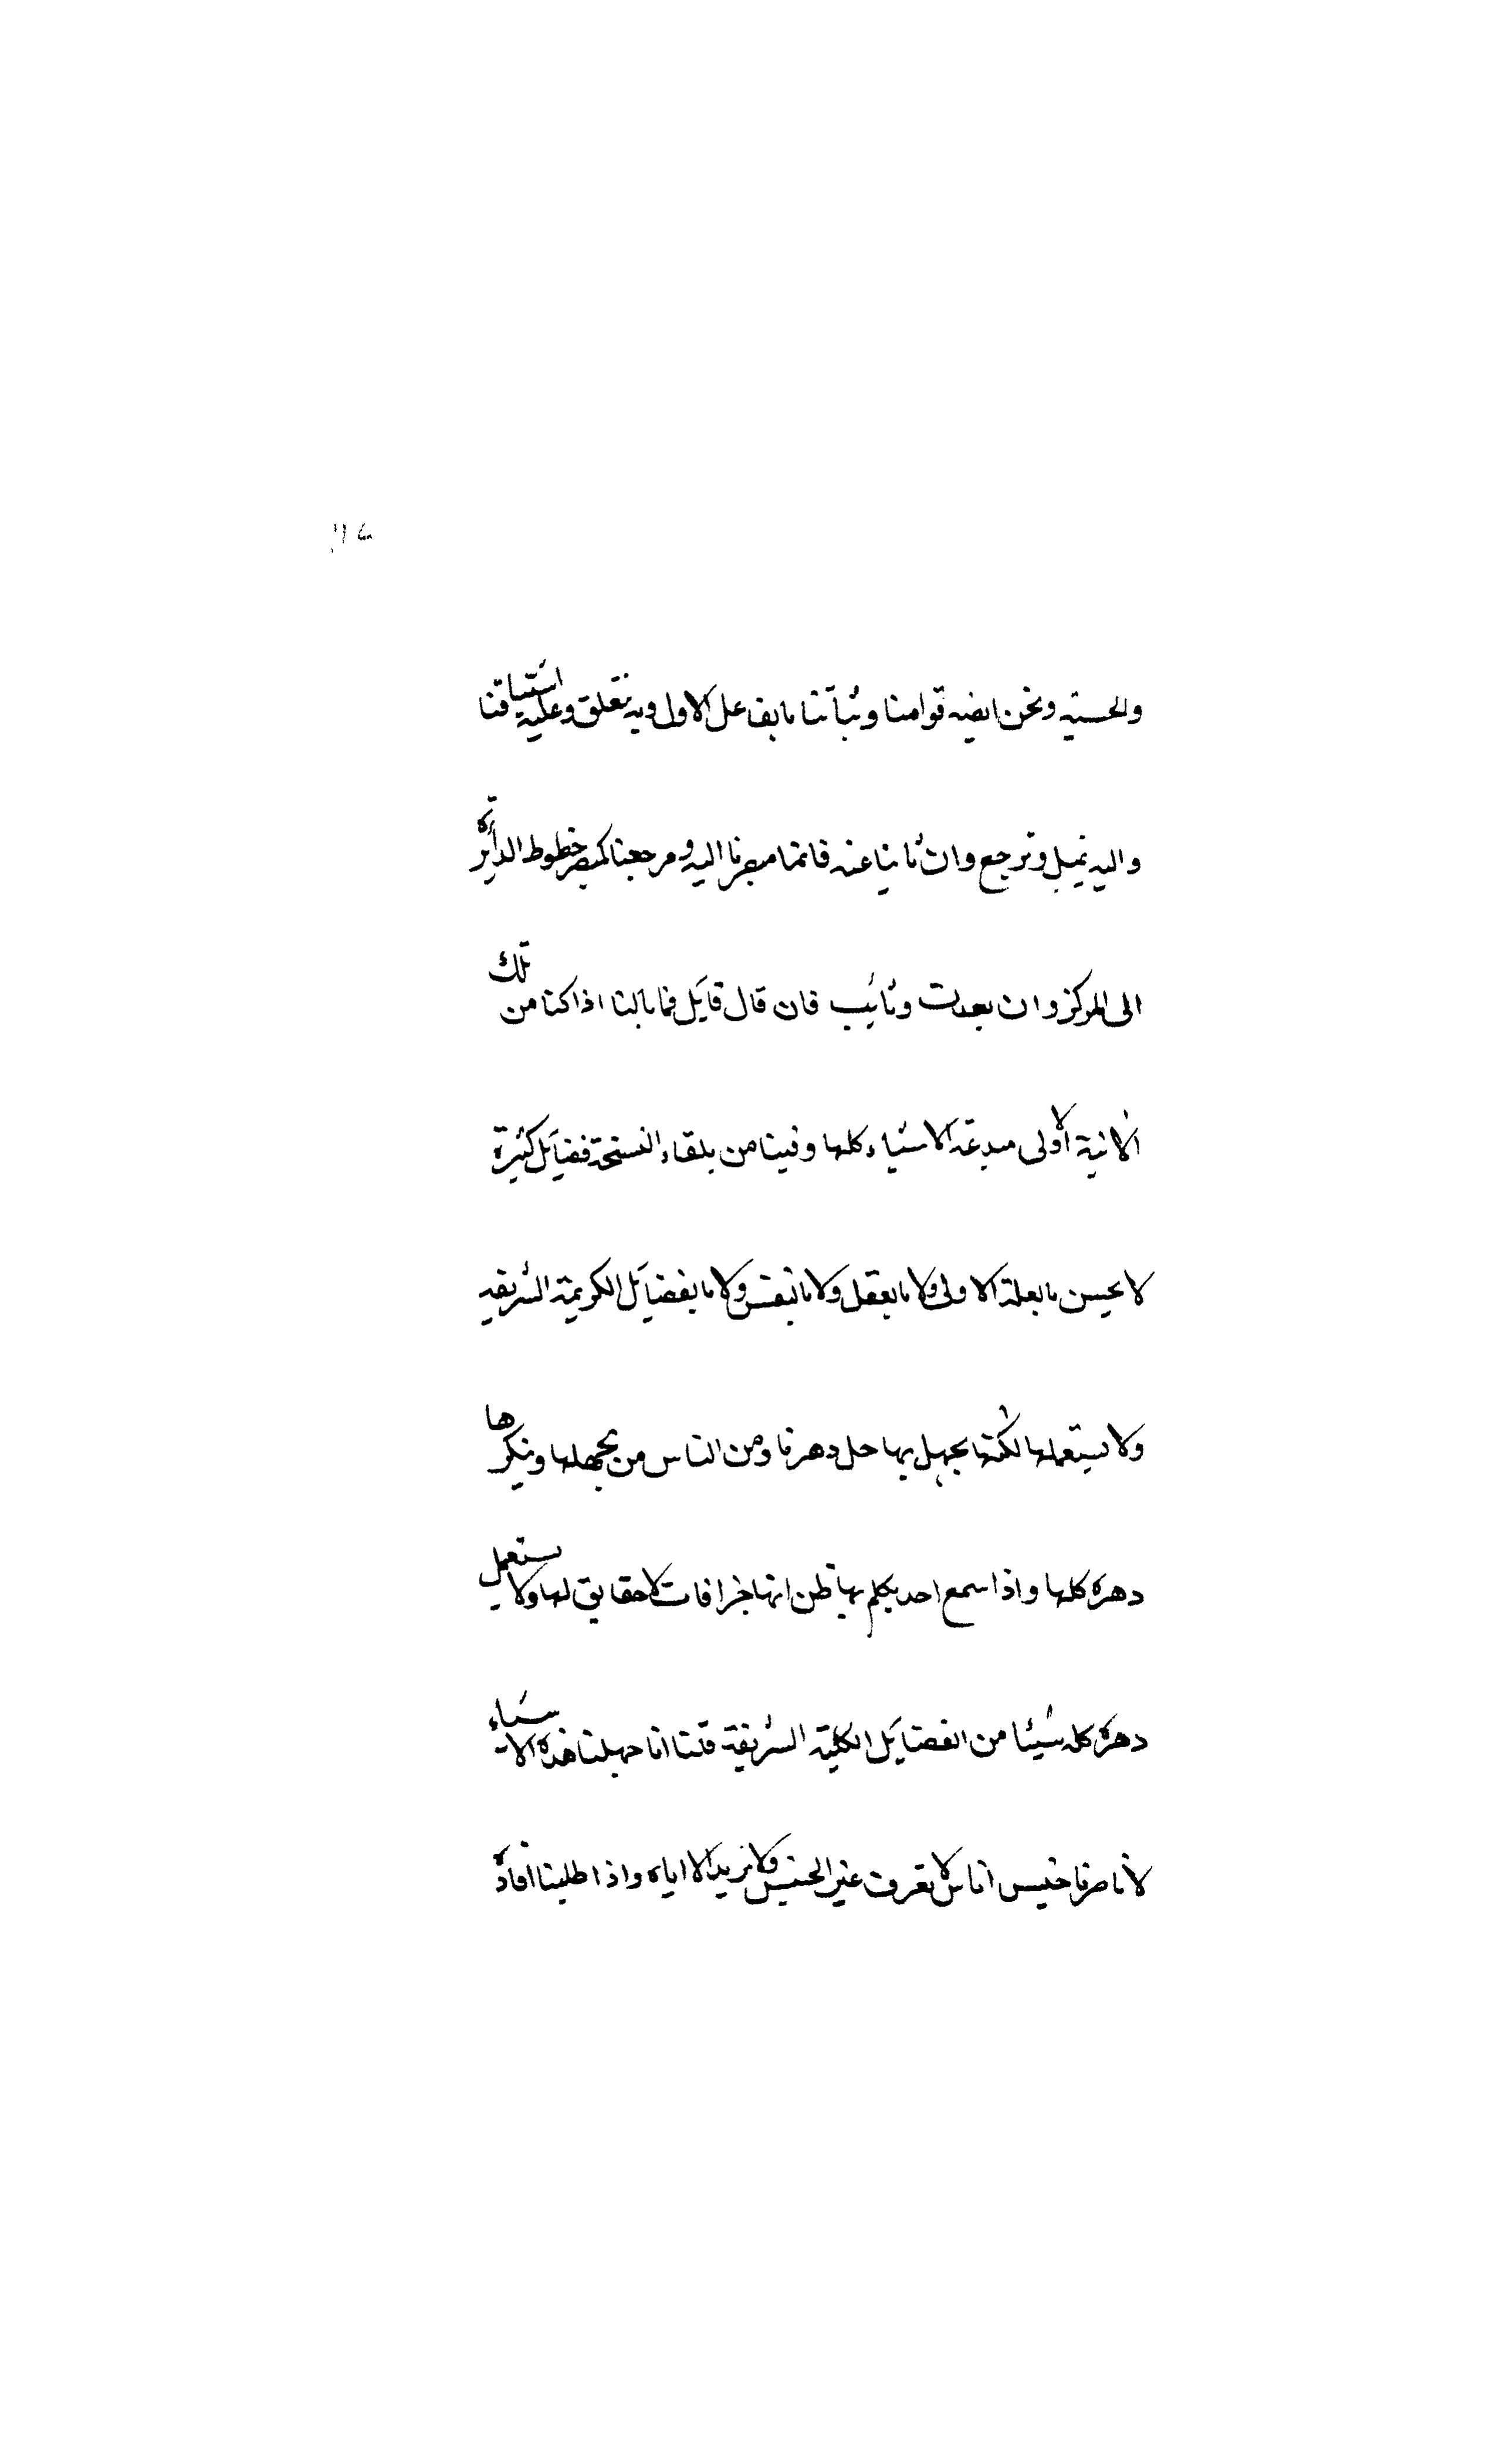 والحسية ونحن ايضه قوامنا وثباتنا بالفاعل الاول وبه نتعلق وعليه اشتياقنا
واليه نميل ونرجع وان نأينا عنه فانما مصيرنا اليه ومرجعنا كمصير خطوط الدايرة
الى المركز وان بعدت ونأيب فان قال قايل فما بالنا اذا كنا من تلك
الانية الاولى مبدعة الاشياء كلها وفينا من بلقاء النسخة فضايل كثيرة
لا نحسن بالعلة الاولى ولا بالعقل ولا بالنفس ولا بالفضايل الكريمة الشريفه
ولا نستعملها لكنها نجهل بها جل دهرنا ومن الناس من يجهلها وينكرها
دهره كلها واذا سمع احد يكلم بها ظن انها خرافات لا حقايق لها ولا يستعمل
دهره كله شيئا من الفضايل الكلية الشريفة قلنا انا جهلنا هذه الاشياء
لأنا صرنا خسيس اناس لا نعرف غير الحسيس ولا نريد الا اياه واذا طلبنا افادة